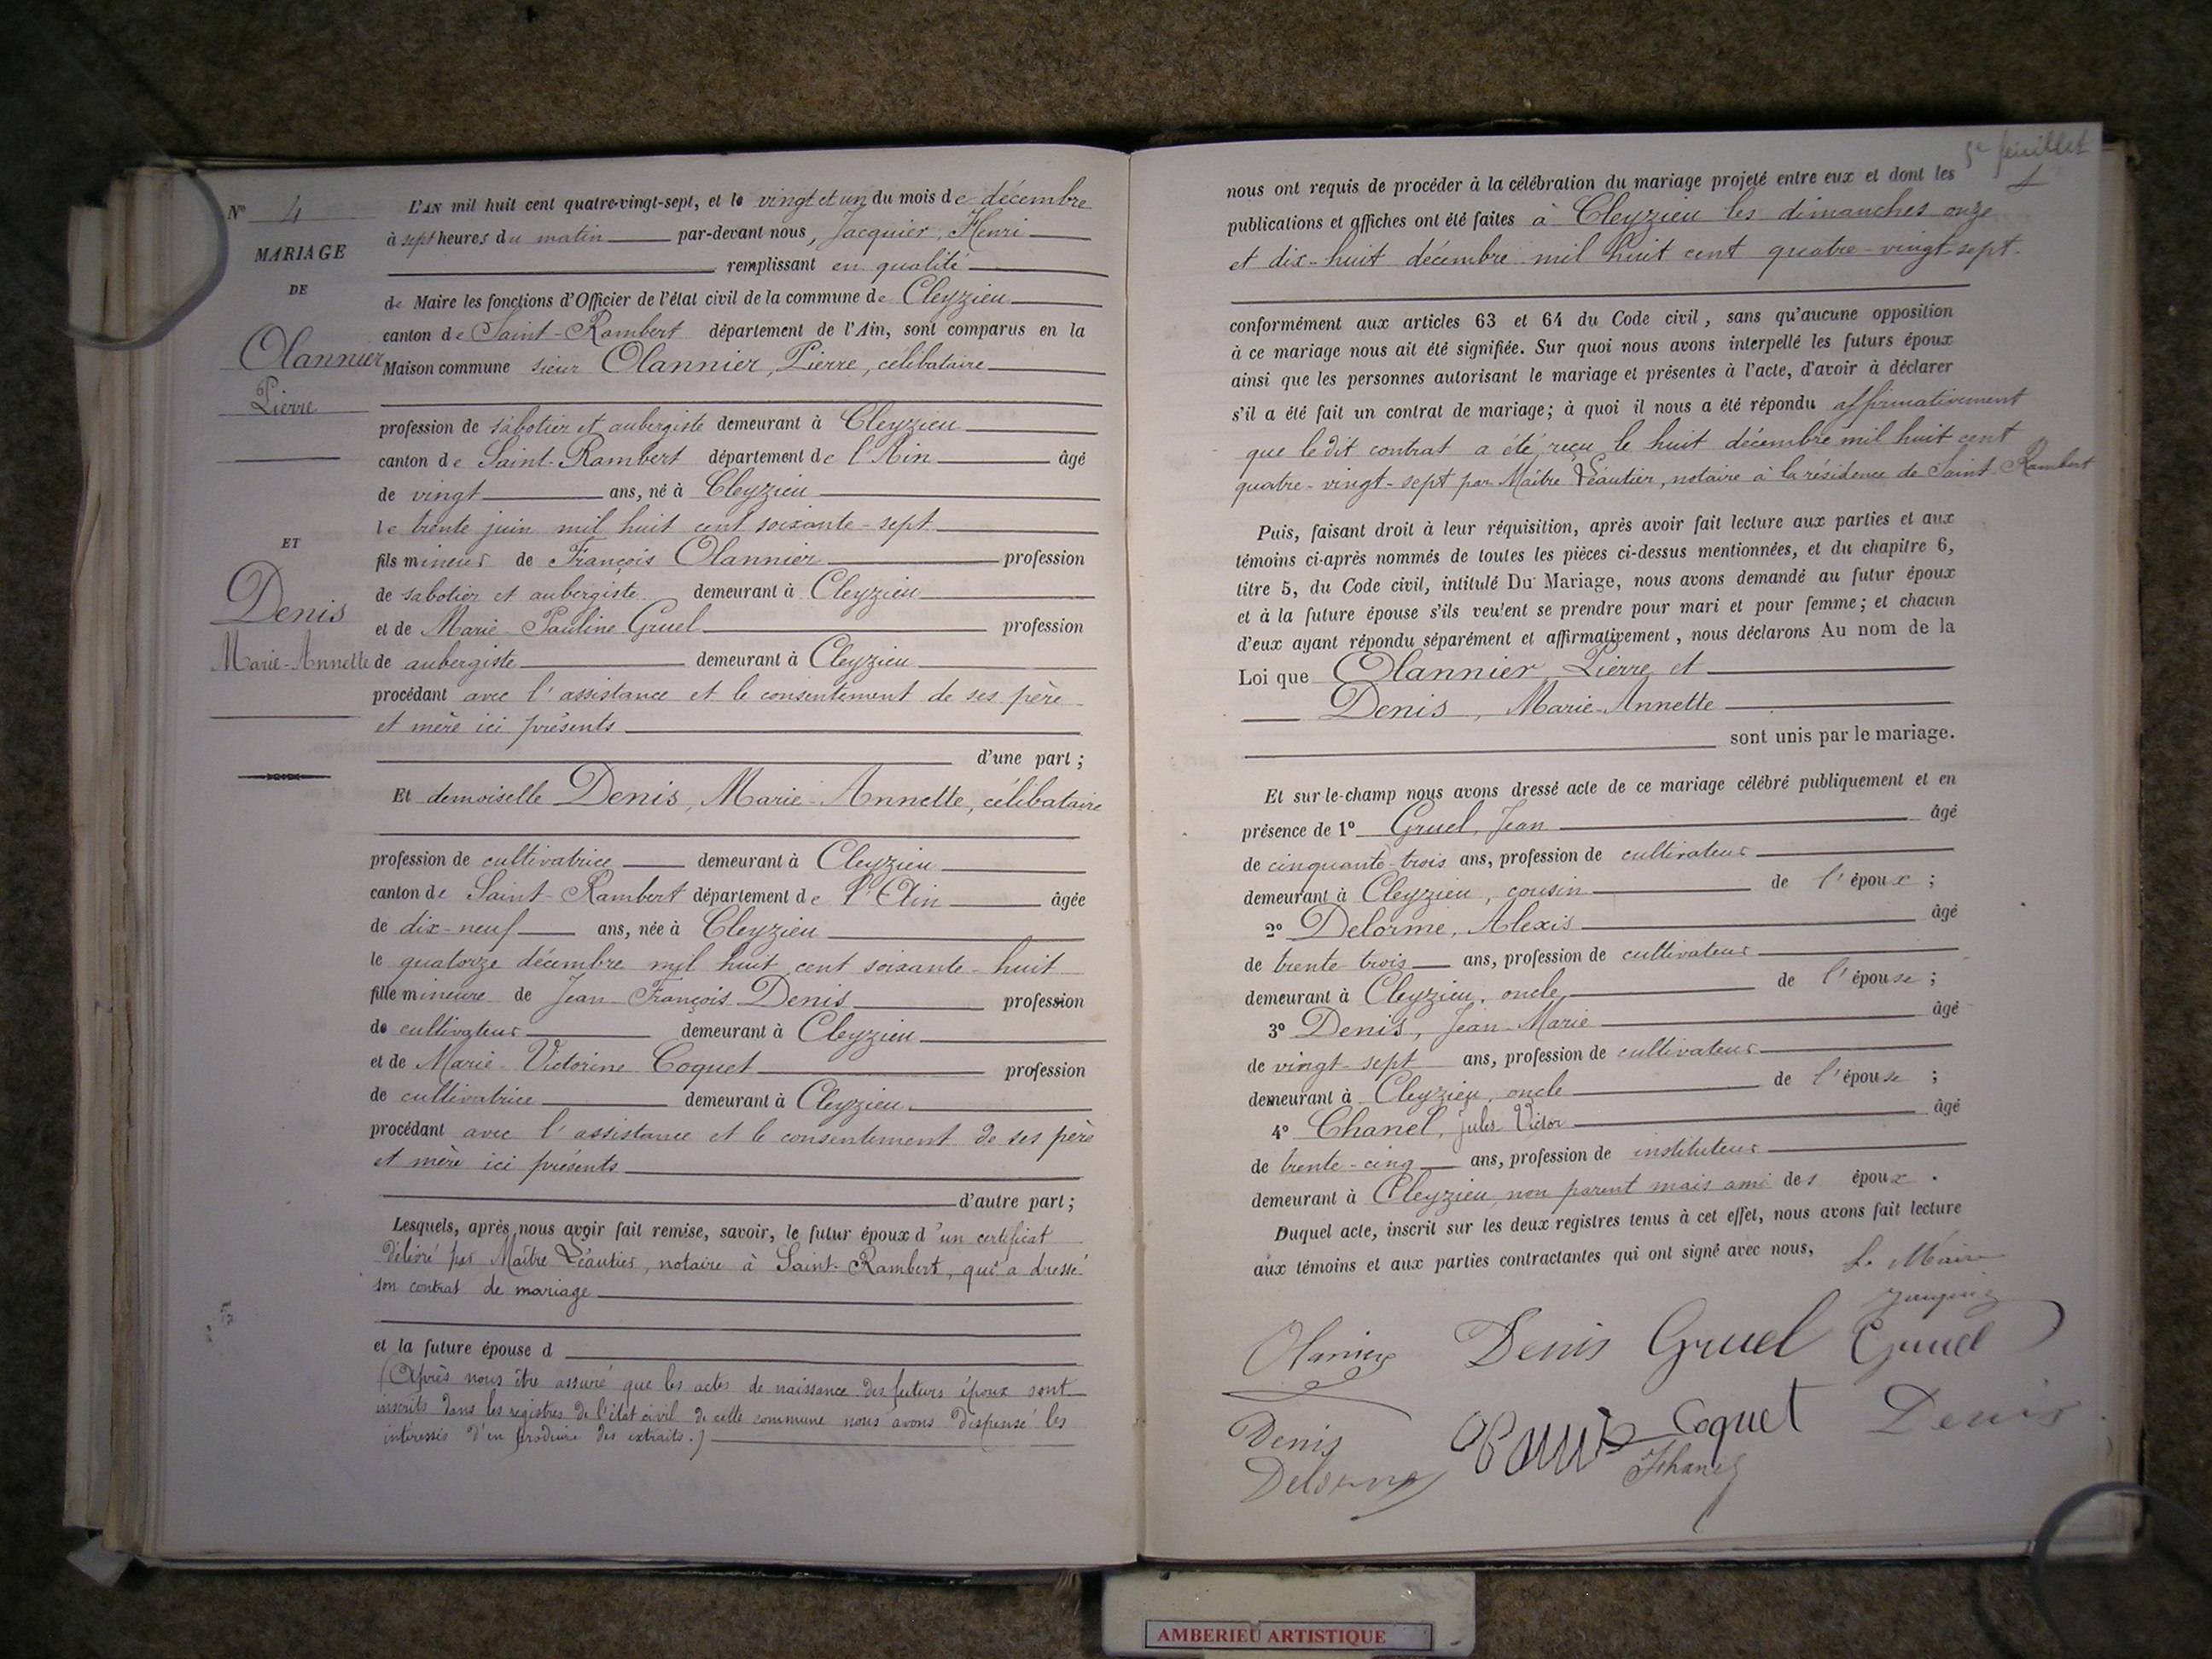 N° 4
MARIAGE
DE
Olannier
Pierre
ET
Denis
Marie-Annette
L'AN mil huit cent quatre-vingt-sept, et le vingt et un du mois de décembre
à sept heures du matin par-devant nous, Jacquier, Henri
remplissant en qualité
de Maire les fonctions d'Officier de l'état civil de la commune de Cleyzieu
canton de Saint-Rambert département de l'Ain, sont comparus en la
Maison commune sieur Olannier, Pierre, célibataire
profession de sabotier et aubergiste demeurant à Cleyzieu
canton de Saint-Rambert département de l'Ain âgé
de vingt ans, né à Cleyzieu
le trente juin mil huit cent soixante-sept
fils mineur de François Olannier profession
de sabotier et aubergiste demeurant à Cleyzieu
et de Marie-Pauline Gruel profession
de aubergiste demeurant à Cleyzieu
procédant avec l'assistance et le consentement de ses père
et mère ici présents
d'une part ;
Et demoiselle Denis, Marie-Annette, célibataire
profession de cultivatrice demeurant à Cleyzieu
canton de Saint-Rambert département de l'Ain âgée
de dix-neuf ans, née à Cleyzieu
le quatorze décembre mil huit cent soixante-huit
fille mineure de Jean-François Denis profession
de cultivateur demeurant à Cleyzieu
et de Marie-Victorine Coquet profession
de cultivatrice demeurant à Cleyzieu
procédant avec l'assistance et le consentement de ses père
et mère ici présents
d'autre part ;
Lesquels, après nous avoir fait remise, savoir, le futur époux d'un certificat
délivré par Maître Léautier, notaire à Saint-Rambert, qui a dressé
son contrat de mariage
et la future épouse d
(Après nous être assuré que les actes de naissance des futurs époux sont
inscrits dans les registres de l'état civil de cette commune nous avons dispensé les
intéressés d'en produire des extraits.)
5e feuillet
nous ont requis de procéder à la célébration du mariage projeté entre eux et dont les
publications et affiches ont été faites à Cleyzieu les dimanches onze
et dix-huit décembre mil huit cent quatre-vingt-sept.
conformément aux articles 63 et 64 du Code civil, sans qu'aucune opposition
à ce mariage nous ait été signifiée. Sur quoi nous avons interpellé les futurs époux
ainsi que les personnes autorisant le mariage et présentes à l'acte, d'avoir à déclarer
s'il a été fait un contrat de mariage ; à quoi il nous a été répondu affirmativement
que le dit contrat a été reçu le huit décembre mil huit cent
quatre-vingt-sept par Maître Léautier, notaire à la résidence de Saint-Rambert
Puis, faisant droit à leur réquisition, après avoir fait lecture aux parties et aux
témoins ci-après nommés de toutes les pièces ci-dessus mentionnées, et du chapitre 6,
titre 5, du Code civil, intitulé Du Mariage, nous avons demandé au futur époux
et à la future épouse s'ils veulent se prendre pour mari et pour femme ; et chacun
d'eux ayant répondu séparément et affirmativement, nous déclarons Au nom de la
Loi que Olannier, Pierre et
Denis, Marie-Annette
sont unis par le mariage.
Et sur-le-champ nous avons dressé acte de ce mariage célébré publiquement et en
présence de 1° Gruel, Jean âgé
de cinquante-trois ans, profession de cultivateur
demeurant à Cleyzieu, cousin de l'époux ;
2° Delorme, Alexis âgé
de trente-trois ans, profession de cultivateur
demeurant à Cleyzieu, oncle de l'épouse ;
3° Denis, Jean-Marie âgé
de vingt-sept ans, profession de cultivateur
demeurant à Cleyzieu, oncle de l'épouse ;
4° Chanel, Jules Victor âgé
de trente-cinq ans, profession de instituteur
demeurant à Cleyzieu, non parent mais ami des époux.
Duquel acte, inscrit sur les deux registres tenus à cet effet, nous avons fait lecture
aux témoins et aux parties contractantes qui ont signé avec nous,
Le Maire
Olanier Denis Gruel Gruel
Denis Coquet Denis
Delorme
AMBERIEU ARTISTIQUE